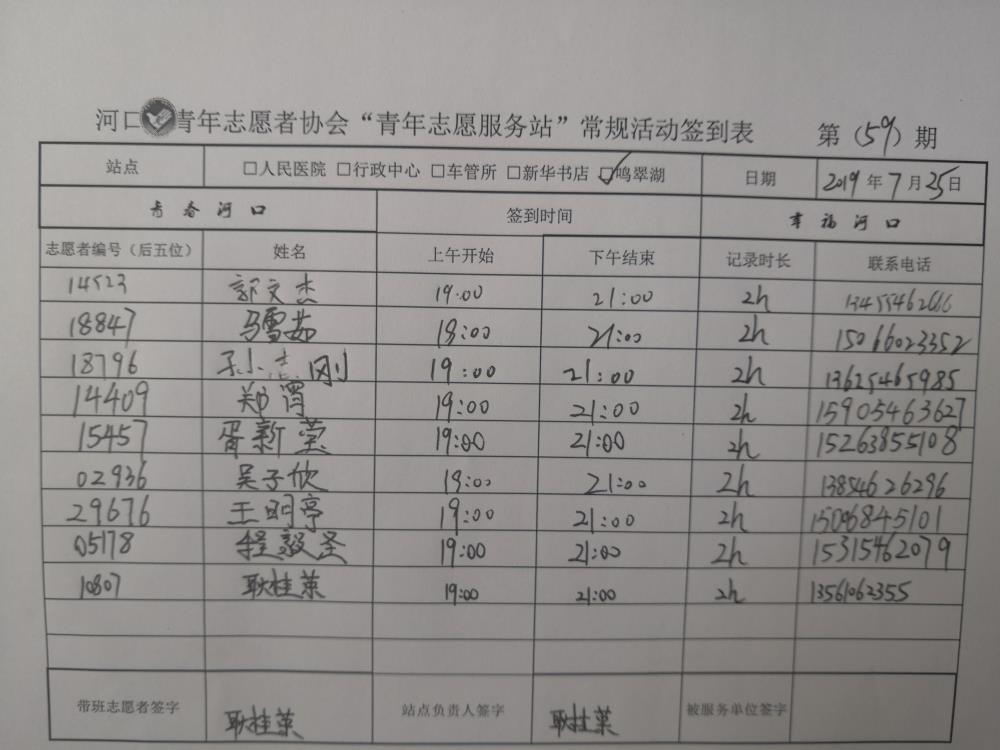 河口青年志愿者协会“青年志愿服务站”常规活动签到表 第（59）期
站点 □人民医院 □行政中心 □车管所 □新华书店 ☑鸣翠湖 日期 2019年7月25日
青春河口 签到时间 幸福河口
志愿者编号（后五位） 姓名 上午开始 下午结束 记录时长 联系电话
14523 郭文杰 19:00 21:00 2h
18847 马雪茹 19:00 21:00 2h 15066023352
18796 孙志刚 19:00 21:00 2h 13625465985
14409 郑霄 19:00 21:00 2h 15905463627
15457 胥新莹 19:00 21:00 2h 15263855108
02936 吴子欣 19:00 21:00 2h 13854626296
29676 王明亭 19:00 21:00 2h 15006845101
05178 程毅圣 19:00 21:00 2h 15315462079
10807 耿桂莱 19:00 21:00 2h 13561062355
带班志愿者签字 耿桂莱 站点负责人签字 耿桂莱 被服务单位签字